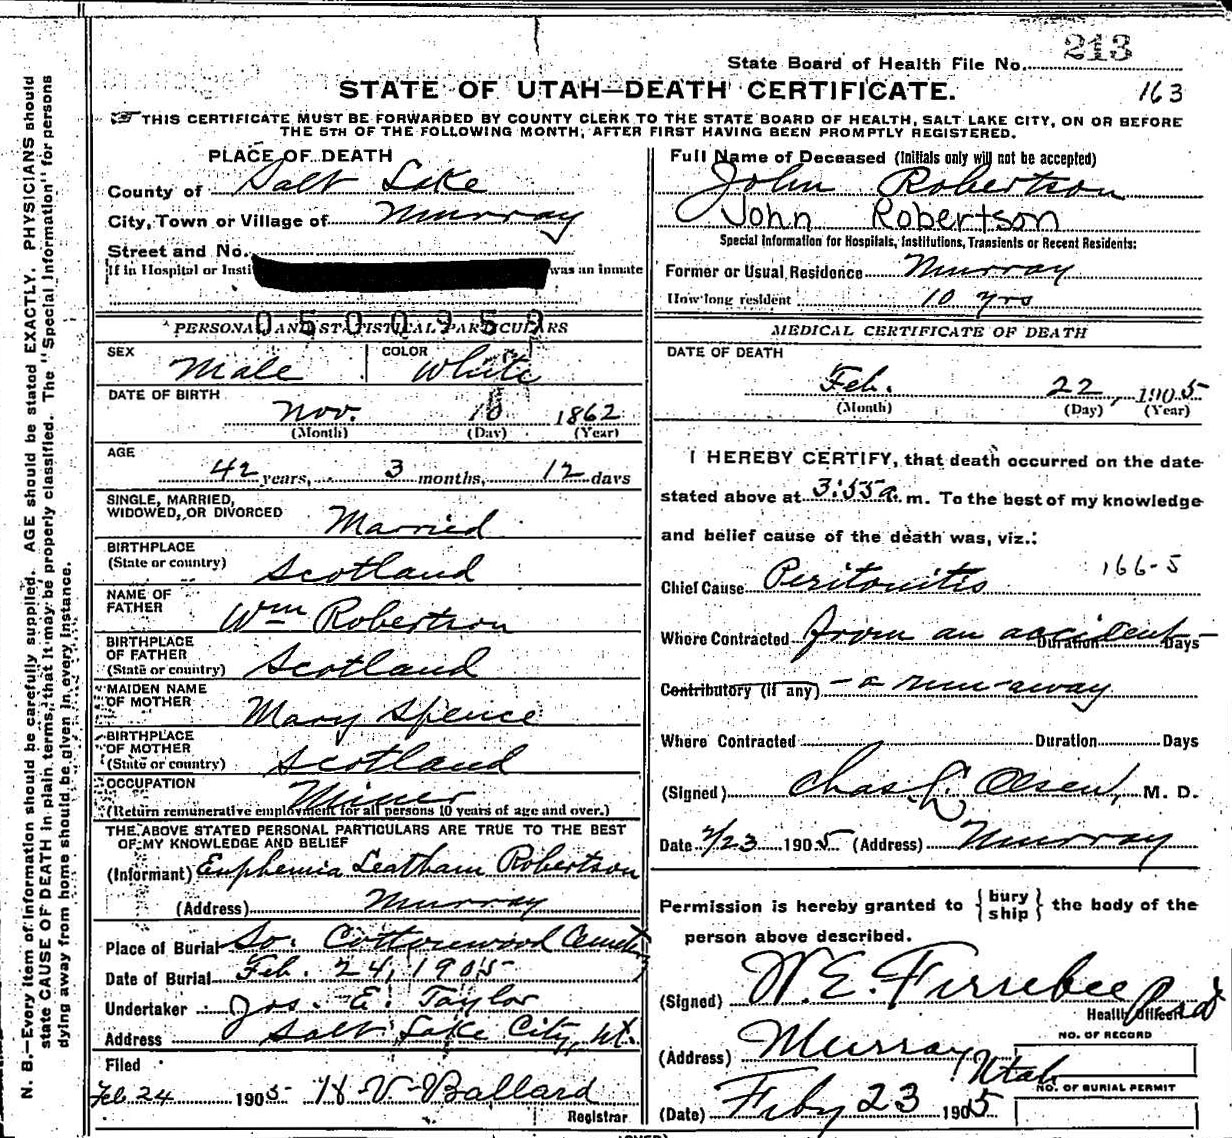 State Board of Health File No. 213
STATE OF UTAH—DEATH CERTIFICATE.
163
THIS CERTIFICATE MUST BE FORWARDED BY COUNTY CLERK TO THE STATE BOARD OF HEALTH, SALT LAKE CITY, ON OR BEFORE
THE 5TH OF THE FOLLOWING MONTH, AFTER FIRST HAVING BEEN PROMPTLY REGISTERED.
PLACE OF DEATH
County of Salt Lake
City, Town or Village of Murray
Street and No.
If in Hospital or Insti was an inmate
0500952
PERSONAL AND STATISTICAL PARTICULARS
SEX Male COLOR White
DATE OF BIRTH
Nov. 10 1862
(Month) (Day) (Year)
AGE
42 years, 3 months, 12 days
SINGLE, MARRIED,
WIDOWED, OR DIVORCED Married
BIRTHPLACE
(State or country) Scotland
NAME OF
FATHER Wm Robertson
BIRTHPLACE
OF FATHER
(State or country) Scotland
MAIDEN NAME
OF MOTHER Mary Spence
BIRTHPLACE
OF MOTHER
(State or country) Scotland
OCCUPATION Miner
(Return remunerative employment for all persons 10 years of age and over.)
THE ABOVE STATED PERSONAL PARTICULARS ARE TRUE TO THE BEST
OF MY KNOWLEDGE AND BELIEF
(Informant) Euphemia Leatham Robertson
(Address) Murray
Place of Burial So. Cottonwood Cemetry
Date of Burial Feb. 24, 1905
Undertaker Jos. E. Taylor
Address Salt Lake City, Ut.
Filed
Feb 24 1905 H V Ballard
Registrar
Full Name of Deceased (Initials only will not be accepted)
John Robertson
John Robertson
Special Information for Hospitals, Institutions, Transients or Recent Residents:
Former or Usual Residence Murray
How long resident 10 yrs
MEDICAL CERTIFICATE OF DEATH
DATE OF DEATH
Feb. 22, 1905
(Month) (Day) (Year)
I HEREBY CERTIFY, that death occurred on the date
stated above at 3:55 a. m. To the best of my knowledge
and belief cause of the death was, viz.:
166-5
Chief Cause Peritonitis
Where Contracted from an accident Duration Days
Contributory (if any) – a run-away
Where Contracted Duration Days
(Signed) Chas L Olsen, M. D.
Date 2/23 1905 (Address) Murray
Permission is hereby granted to {bury ship} the body of the
person above described.
(Signed) W. E. Firrebee
Health Officer
NO. OF RECORD
(Address) Murray, Utah
NO. OF BURIAL PERMIT
(Date) Feby 23 1905
(OVER)
N. B.—Every item of information should be carefully supplied. AGE should be stated EXACTLY. PHYSICIANS should
state CAUSE OF DEATH in plain terms, that it may be properly classified. The "Special Information" for persons
dying away from home should be given in every instance.